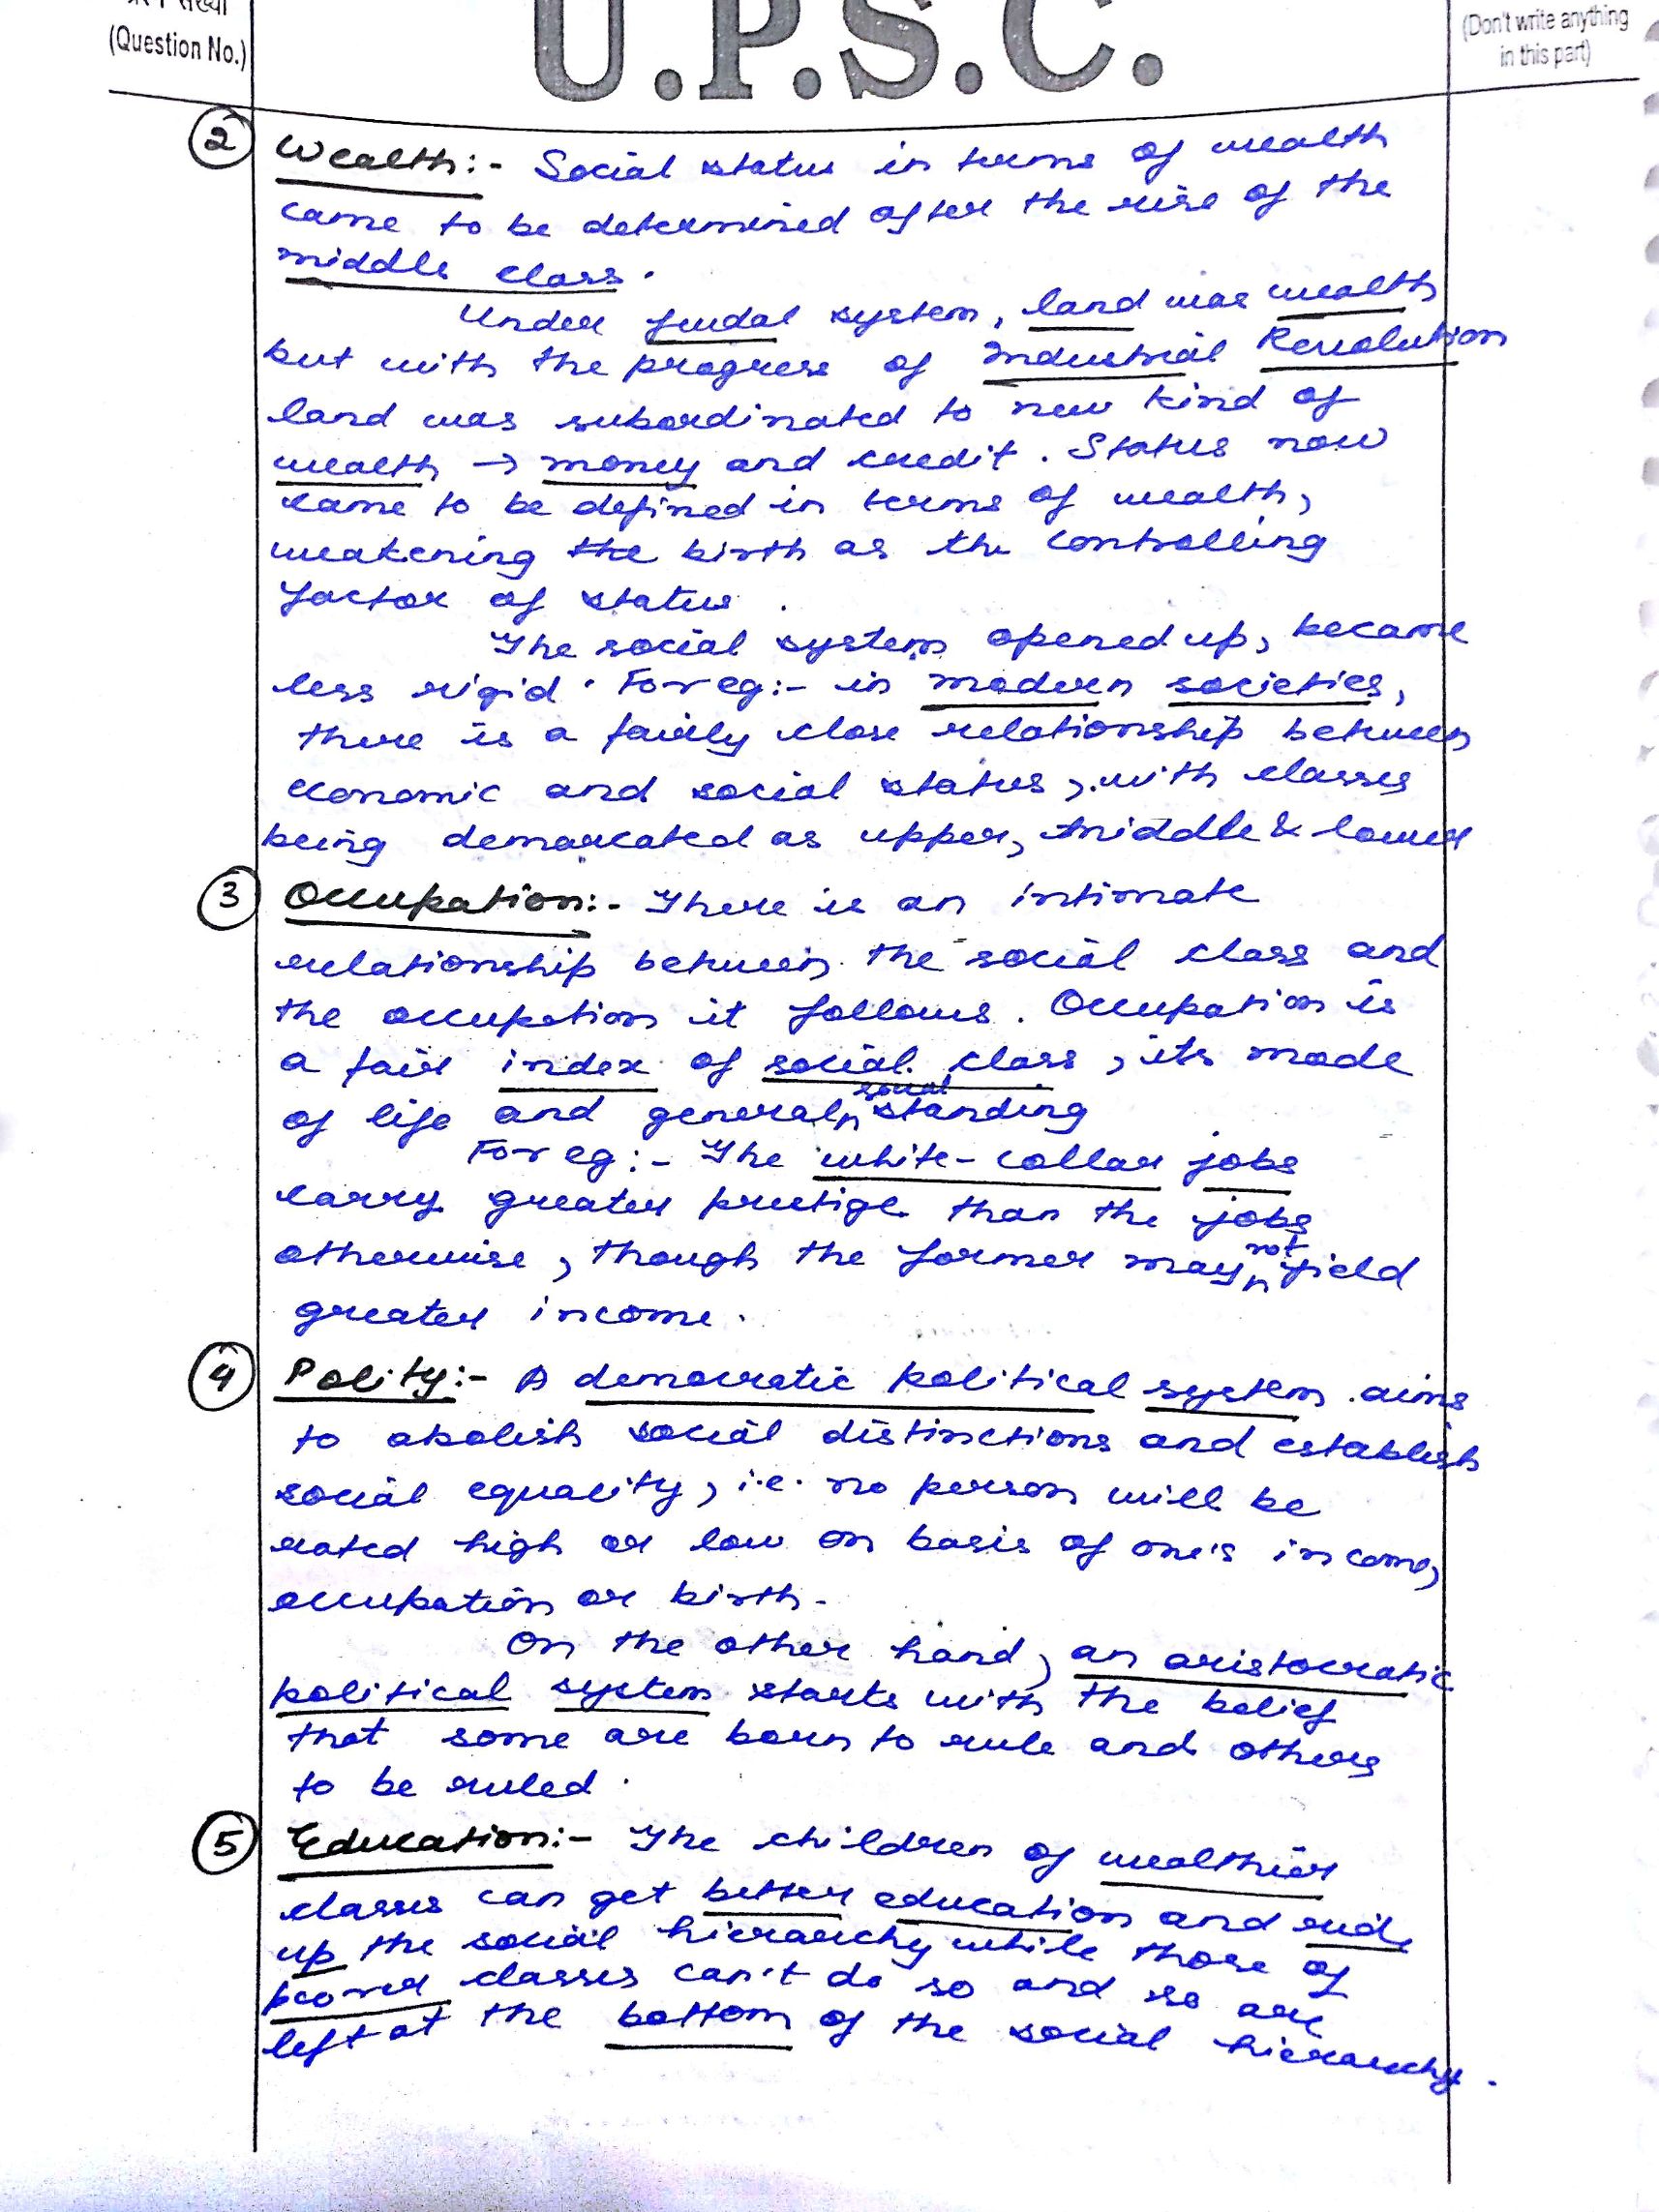 प्रश्न संख्या
(Question No.)
U.P.S.C.
(Don't write anything
in this part)
2 Wealth:- Social status in terms of wealth
came to be determined after the rise of the
middle class.
Under feudal system, land was wealth
but with the progress of Industrial Revolution
land was subordinated to new kind of
wealth → money and credit. Status now
came to be defined in terms of wealth,
weakening the birth as the controlling
factor of status.
The social system opened up, became
less rigid. For eg:- in modern societies,
there is a fairly close relationship between
economic and social status, with classes
being demarcated as upper, middle & lower
3 Occupation:- There is an intimate
relationship between the social class and
the occupation it follows. Occupation is
a fair index of social class, its mode
of life and general social standing
For eg:- The white-collar jobs
carry greater prestige than the jobs
otherwise, though the former may not yield
greater income.
4 Polity:- A democratic political system aims
to abolish social distinctions and establish
social equality, i.e. no person will be
rated high or low on basis of one's income,
occupation or birth.
On the other hand, an aristocratic
political system starts with the belief
that some are born to rule and others
to be ruled.
5 Education:- The children of wealthier
classes can get better education and ride
up the social hierarchy while those of
poorer classes can't do so and so are
left at the bottom of the social hierarchy.